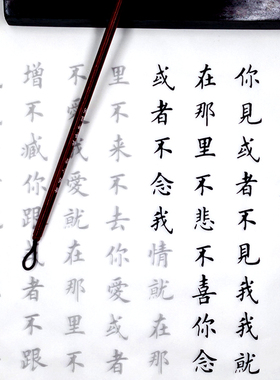 你見或者不見我我就
在那里不悲不喜你念
或者不念我情就在那
里不来不去你愛或者
不愛我愛就在那里不
增不臧你跟或者不跟